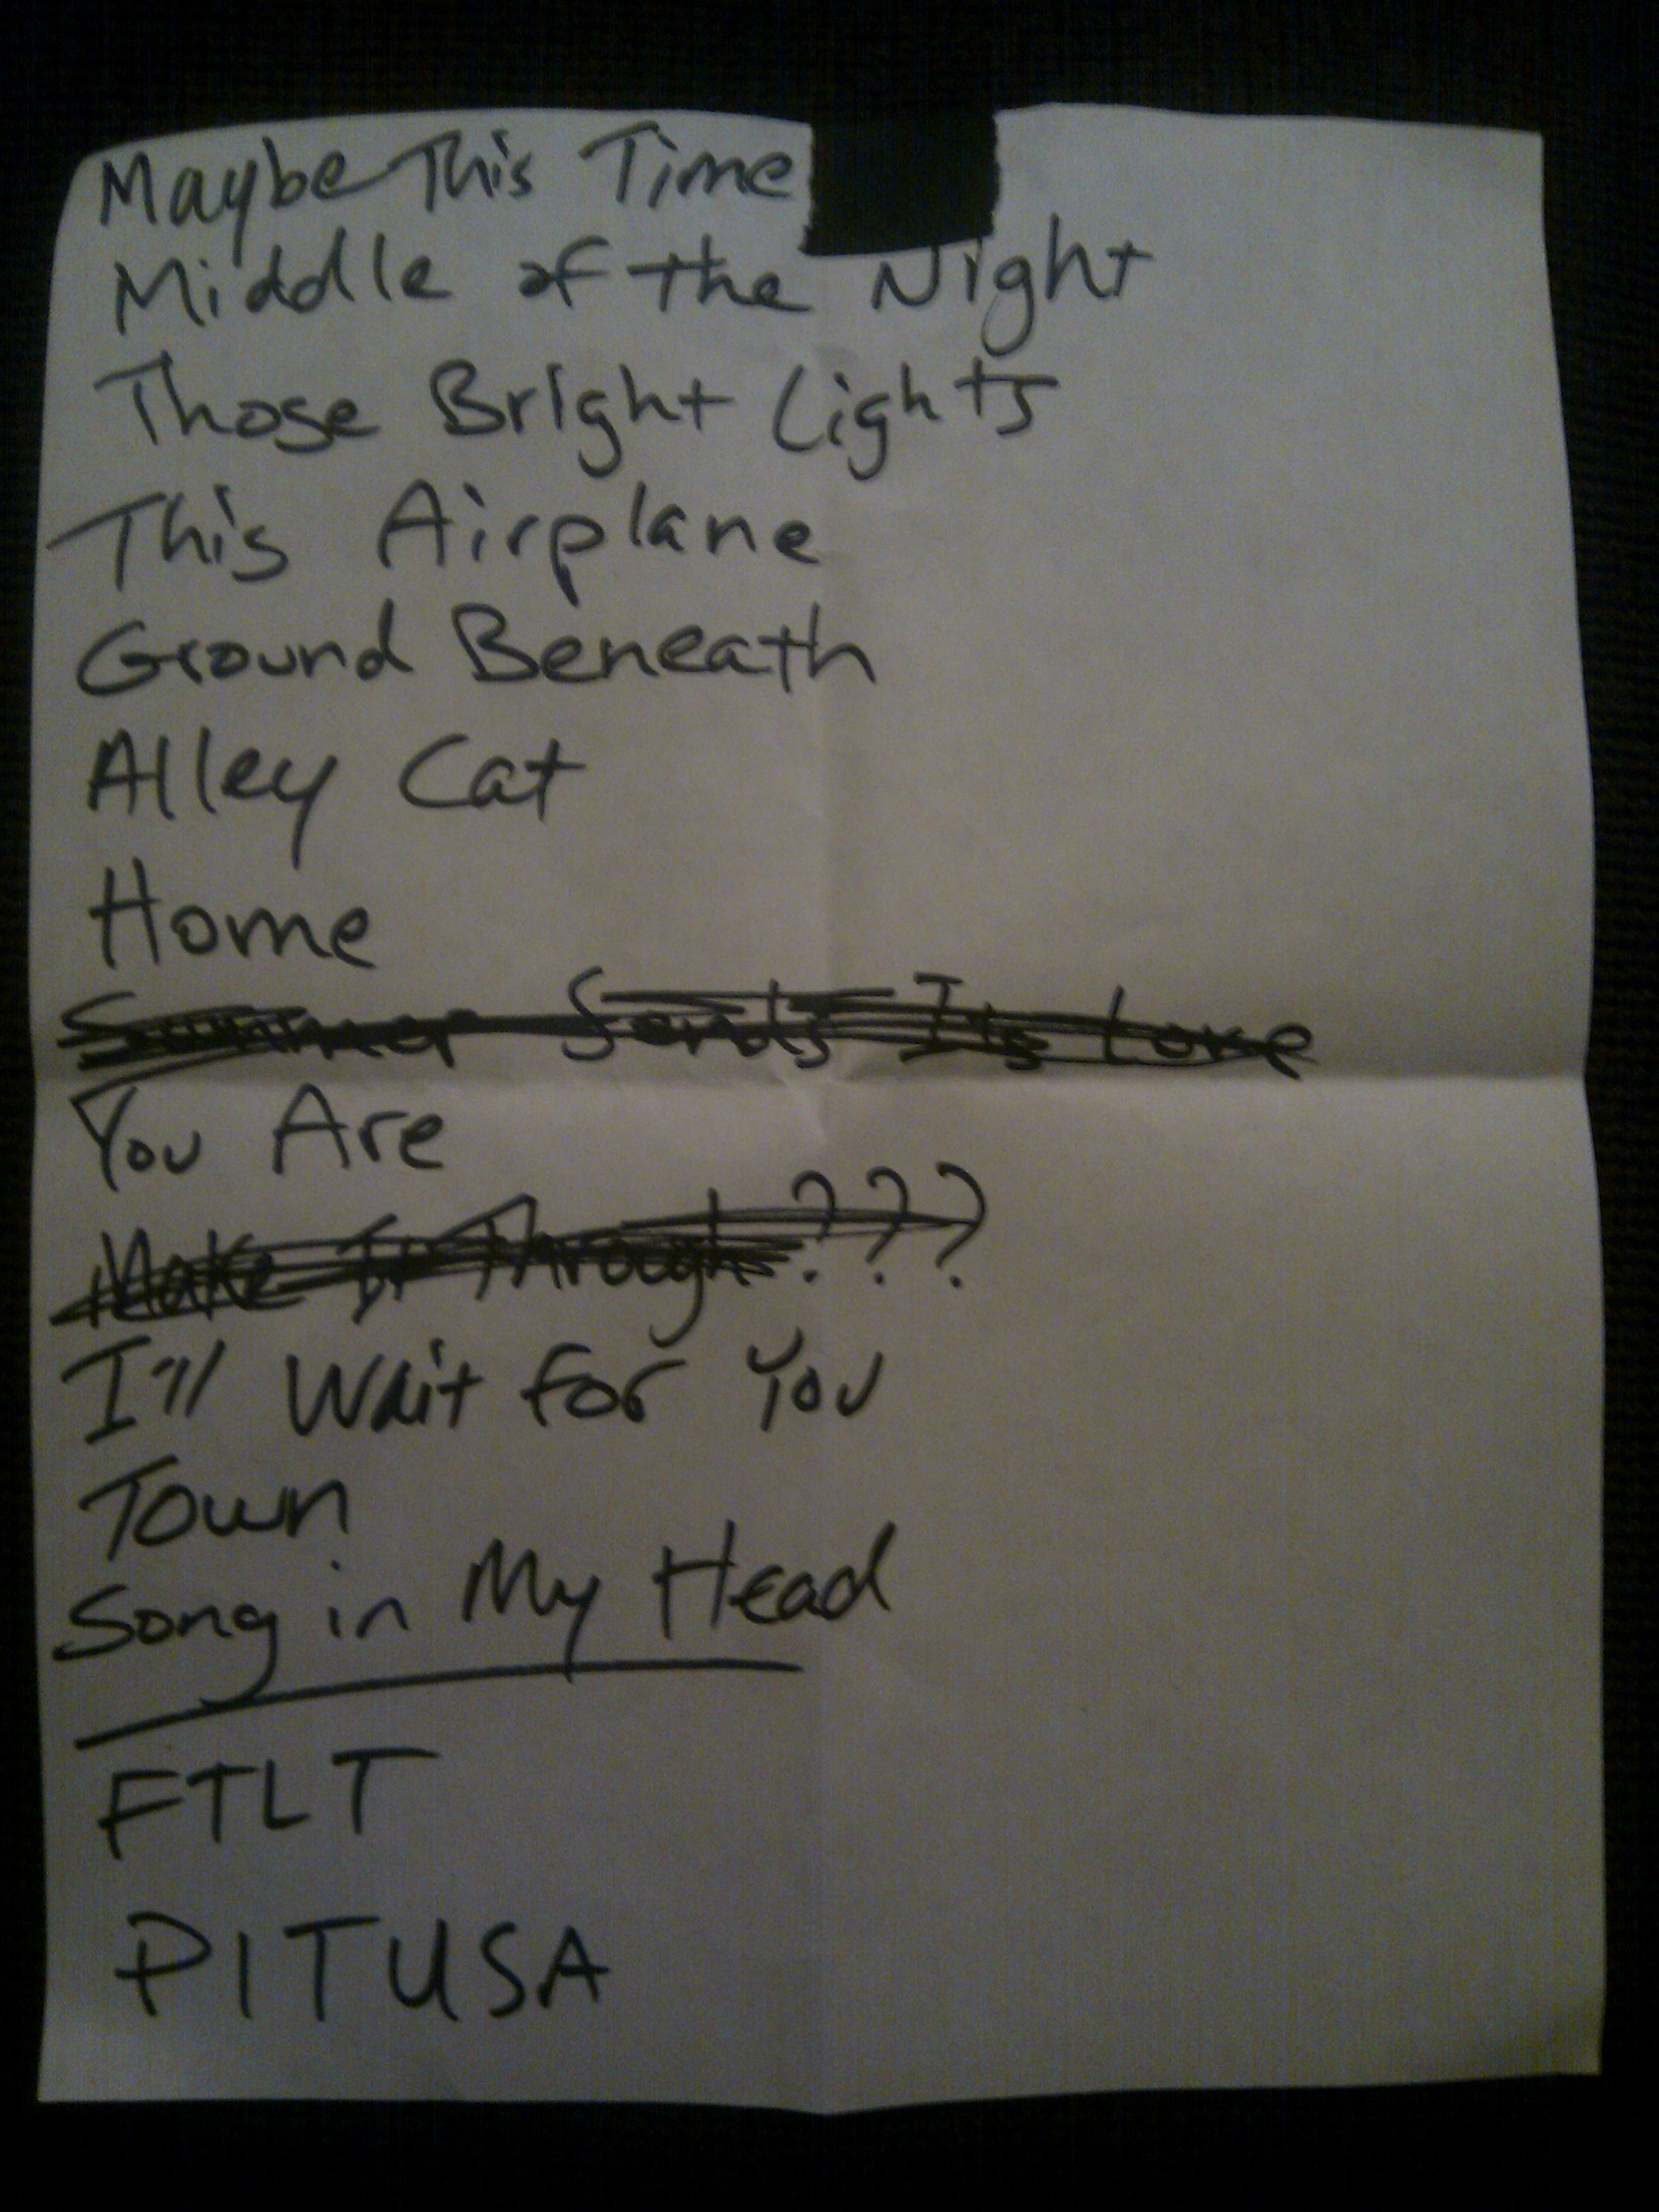 Maybe This Time
Middle of the Night
Those Bright Lights
This Airplane
Ground Beneath
Alley Cat
Home
Summer Sends Its Love
You Are
Make It Through???
I'll Wait for You
Town
Song in My Head
FTLT
PITUSA